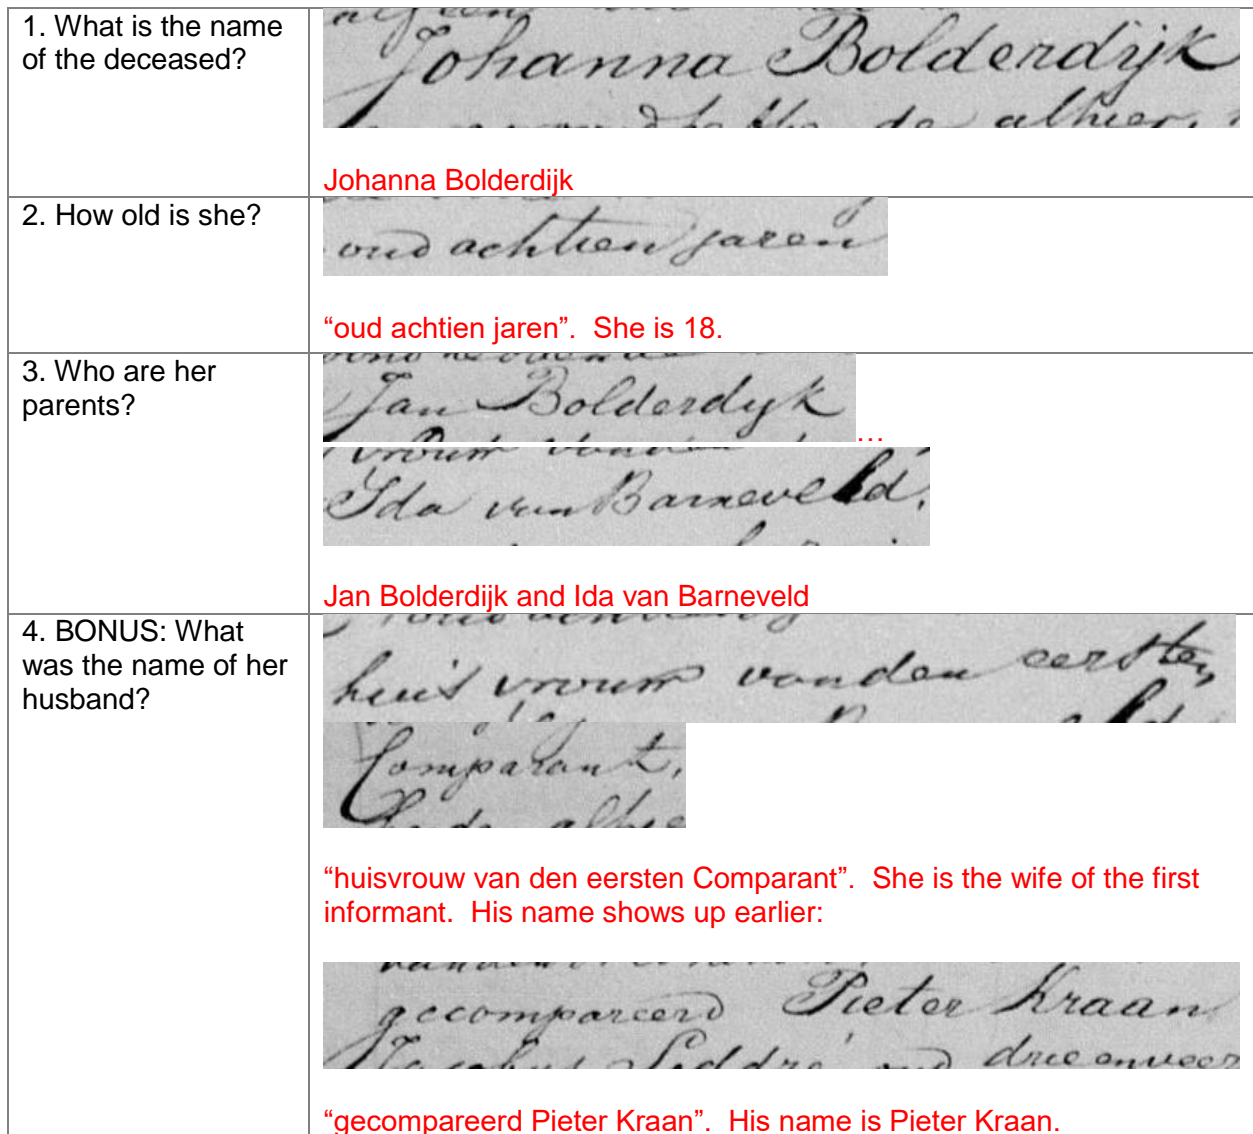 1. What is the name
of the deceased?
Johanna Bolderdijk
de alhier,
Johanna Bolderdijk
2. How old is she?
oud achtien jaren
“oud achtien jaren”. She is 18.
3. Who are her
parents?
Jan Bolderdyk
…
Ida van Barneveld,
Jan Bolderdijk and Ida van Barneveld
4. BONUS: What
was the name of her
husband?
huis vrouw van den eersten
Comparant,
“huisvrouw van den eersten Comparant”. She is the wife of the first
informant. His name shows up earlier:
gecompareerd Pieter Kraan
Jacobus oud drie en veer
“gecompareerd Pieter Kraan”. His name is Pieter Kraan.